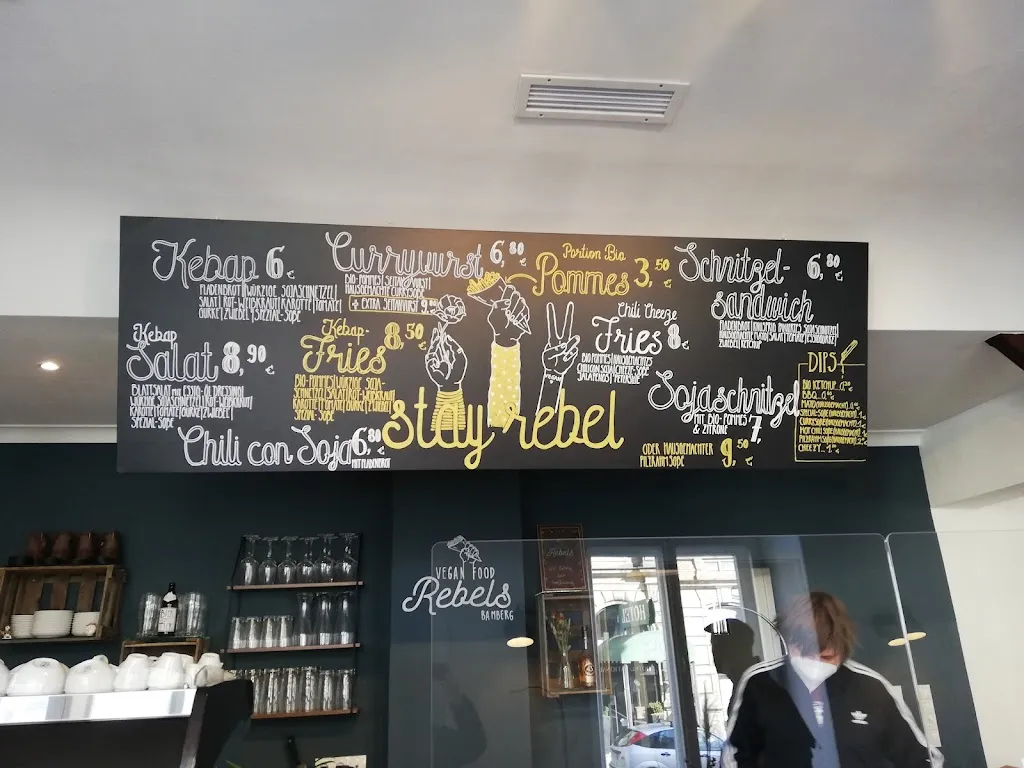 Kebap 6 €
FLADENBROT | WÜRZIGE SOJASCHNETZEL |
SALAT | ROT-WEIßKRAUT | KAROTTE | TOMATE |
GURKE | ZWIEBEL | SPEZIAL-SOßE
Currywurst 6,80 €
BIO-POMMES | SEITANWURST |
HAUSGEMACHTE CURRYSOßE
+ EXTRA SEITANWURST 9,80
Portion Bio
Pommes 3,50 €
Schnitzel-
sandwich 6,80 €
TOMATE | ESSIGGURKE |
ZWIEBEL | KETCHUP
Kebap
Salat 8,90 €
BLATTSALAT MIT ESSIG-ÖL DRESSING |
WÜRZIGE SOJASCHNETZEL | ROT-WEIßKRAUT |
KAROTTE | TOMATE | GURKE | ZWIEBEL |
SPEZIAL-SOßE
Kebap-
Fries 8,50 €
BIO-POMMES | WÜRZIGE SOJA-
SCHNETZEL | SALAT | ROT-WEIßKRAUT |
KAROTTE | TOMATE | GURKE | ZWIEBEL |
SPEZIAL-SOßE
Chili Cheeze
Fries 8 €
BIO POMMES | HAUSGEMACHTES
CHILI CON SOJA | CHEEZE-SOßE
JALAPENOS | PETERSILIE
VEGAN
stay rebel
Chili con Soja 6,80
MIT FLADENBROT
Sojaschnitzel
MIT BIO-POMMES
& ZITRONE 7,
ODER HAUSGEMACHTER
PILZRAHMSOßE 9,50 €
DIPS
BIO KETCHUP
BBQ
VEGAN FOOD
Rebels
BAMBERG
Rebels
HOTEL